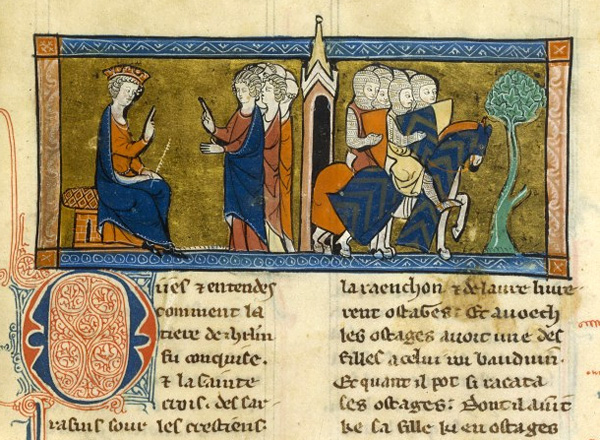 Oiies ⁊ entendes
comment la
tiere de ihrlm
fu conquise.
⁊ la sainte
crois. des sar
rasins sour les crestiens.
la raenchon ⁊ de laure liure
rent ostages. Et auoech
les ostages auoit une des
filles a celui roi bauduin.
Et quant il pot si racata
ses ostages. Dont il auint
ke sa fille ki en ostages